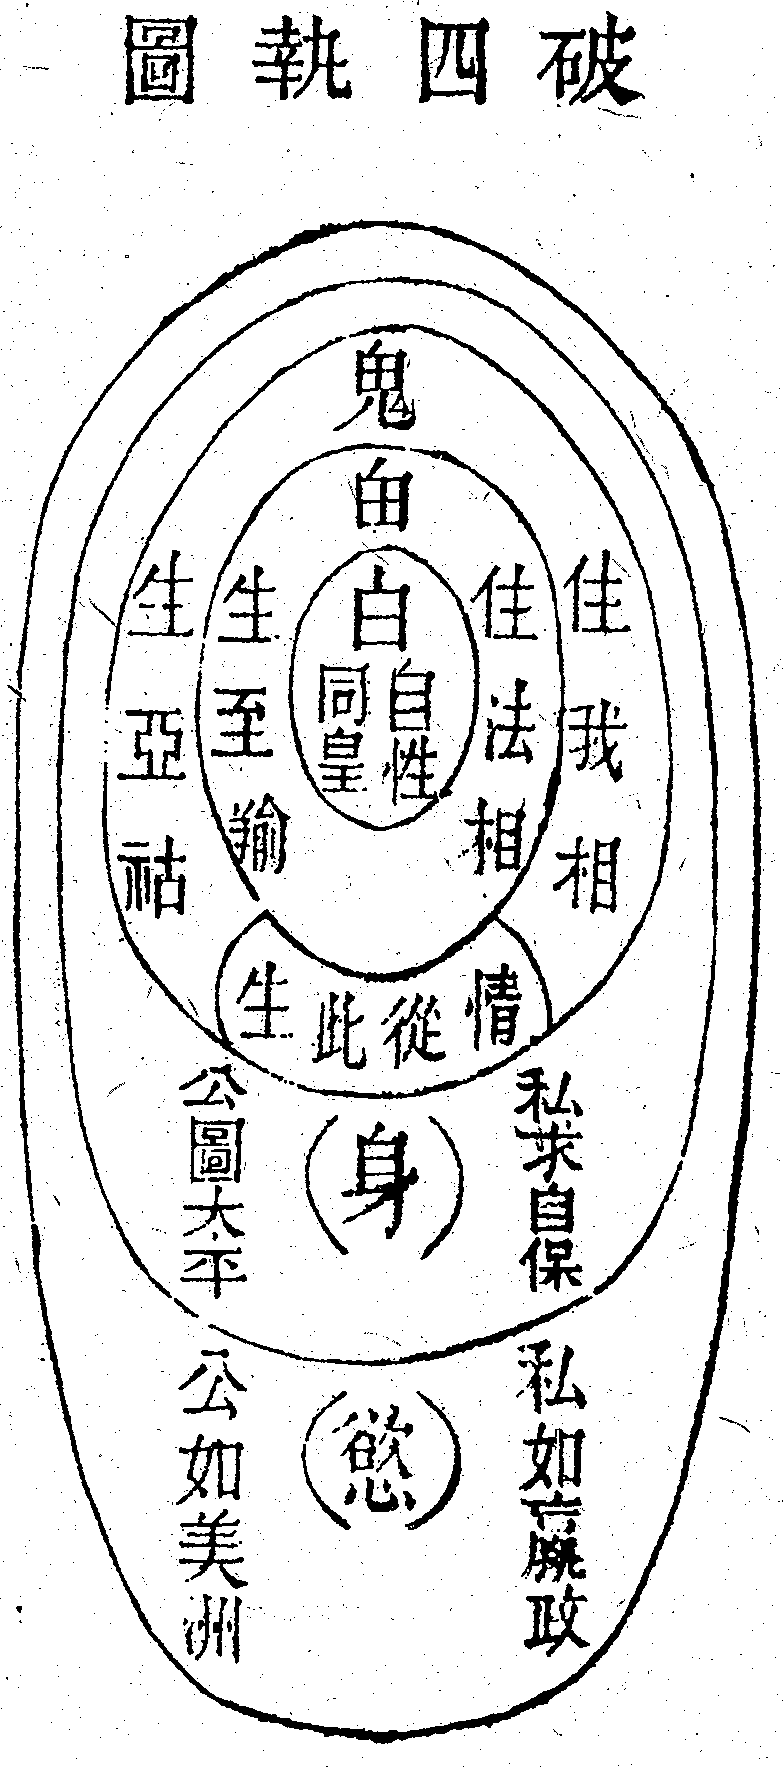 破四執圖
鬼
甶
白
自性
同皇
住我相
住法相
生至
生亞祜
情從此生
私求自保
(身)
公圖太平
私如嬴政
(慾)
公如美洲